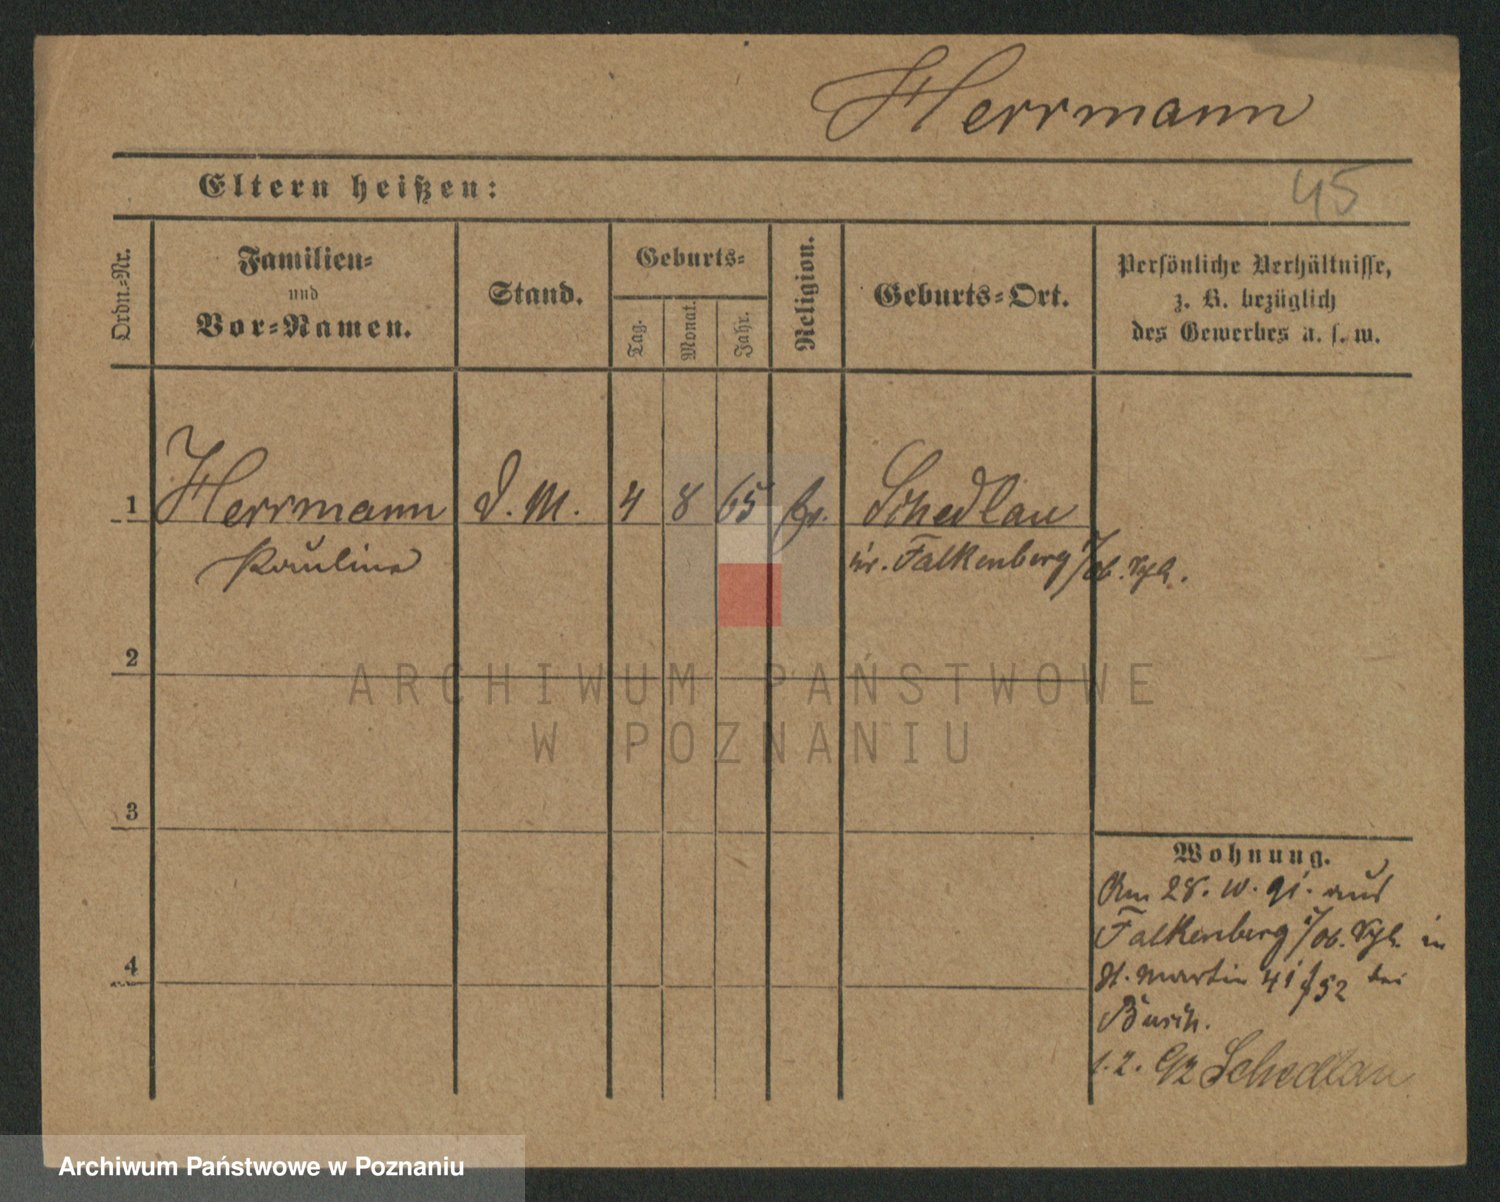 Herrmann
Eltern heißen:
45
Ordn.-Nr.
Familien-
und
Vor-Namen.
Stand.
Geburts-
Tag.
Monat.
Jahr.
Religion.
Geburts-Ort.
Persönliche Verhältnisse,
z. B. bezüglich
des Gewerbes u. s. w.
1
Herrmann
D. M.
4
8
65
Schedlau
Pauline
Falkenberg
2
ARCHIWUM PAŃSTWOWE
W POZNANIU
3
Wohnung.
Am 28. 10. 91. aus
Falkenberg
in
St. Martin
bei
Busch.
1. 2. 92 Schedlau
4
Archiwum Państwowe w Poznaniu